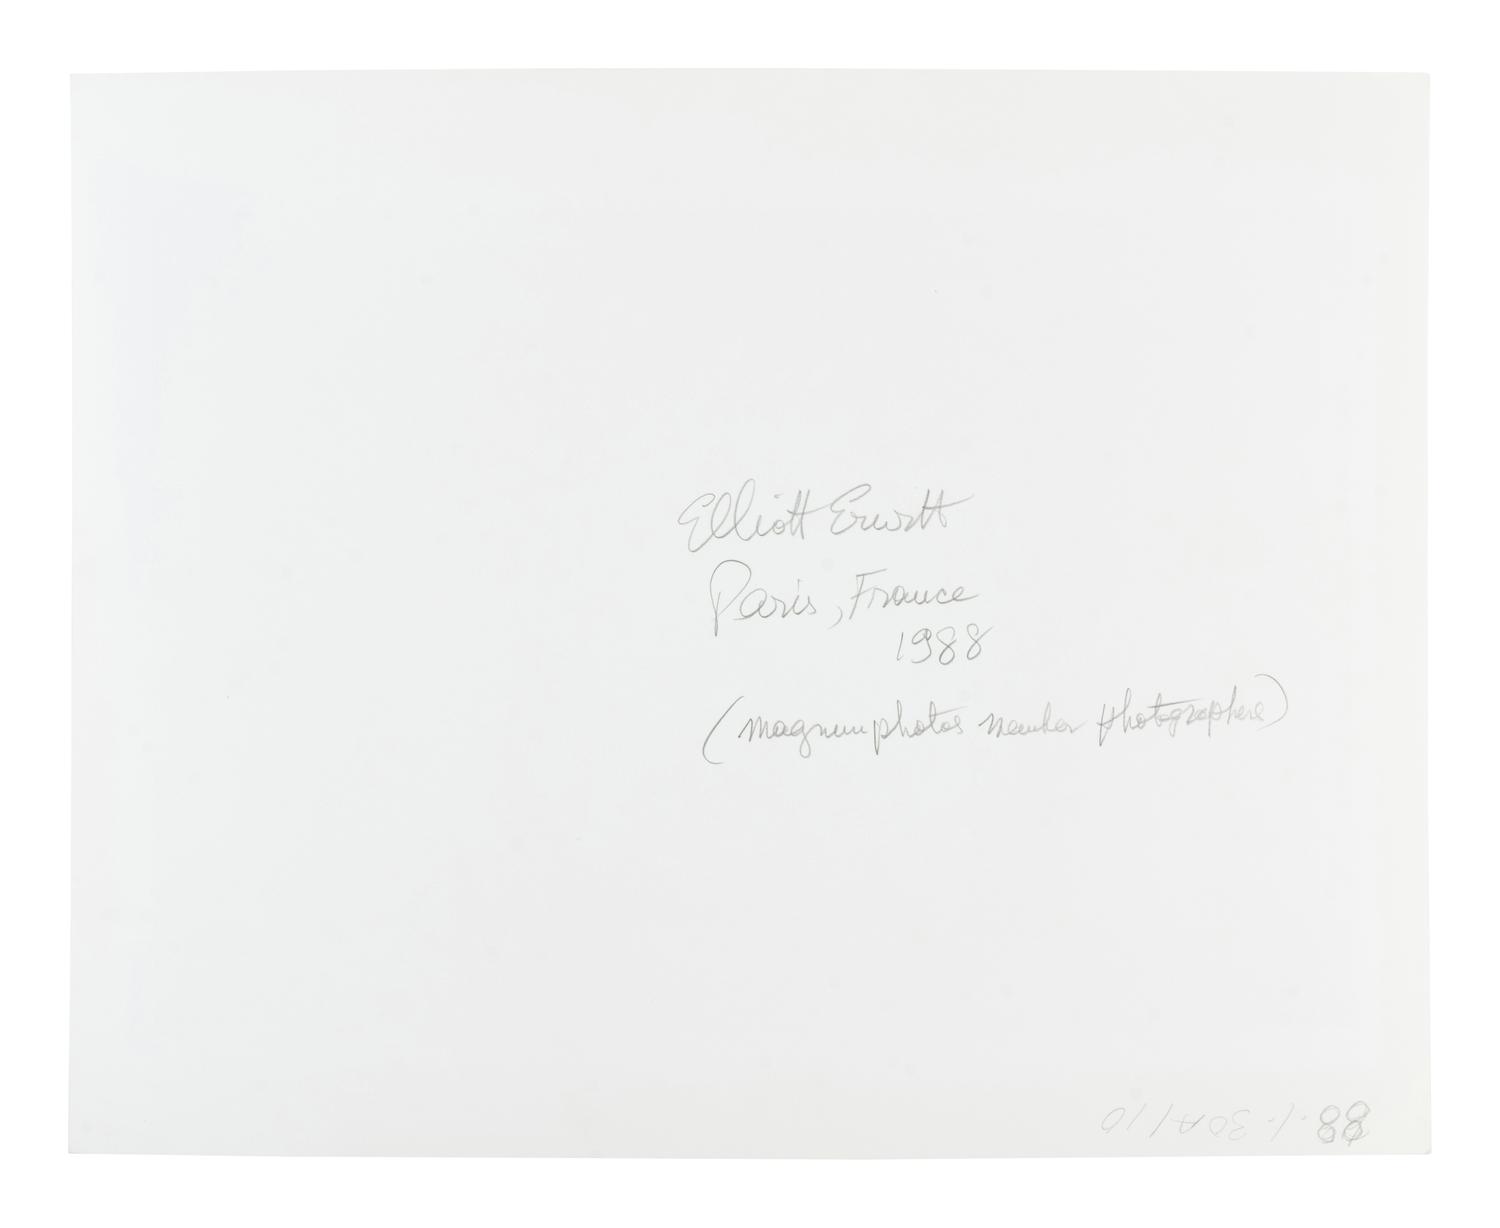 Elliott Erwitt
Paris, France
1988
(magnum photos member photographers)
88